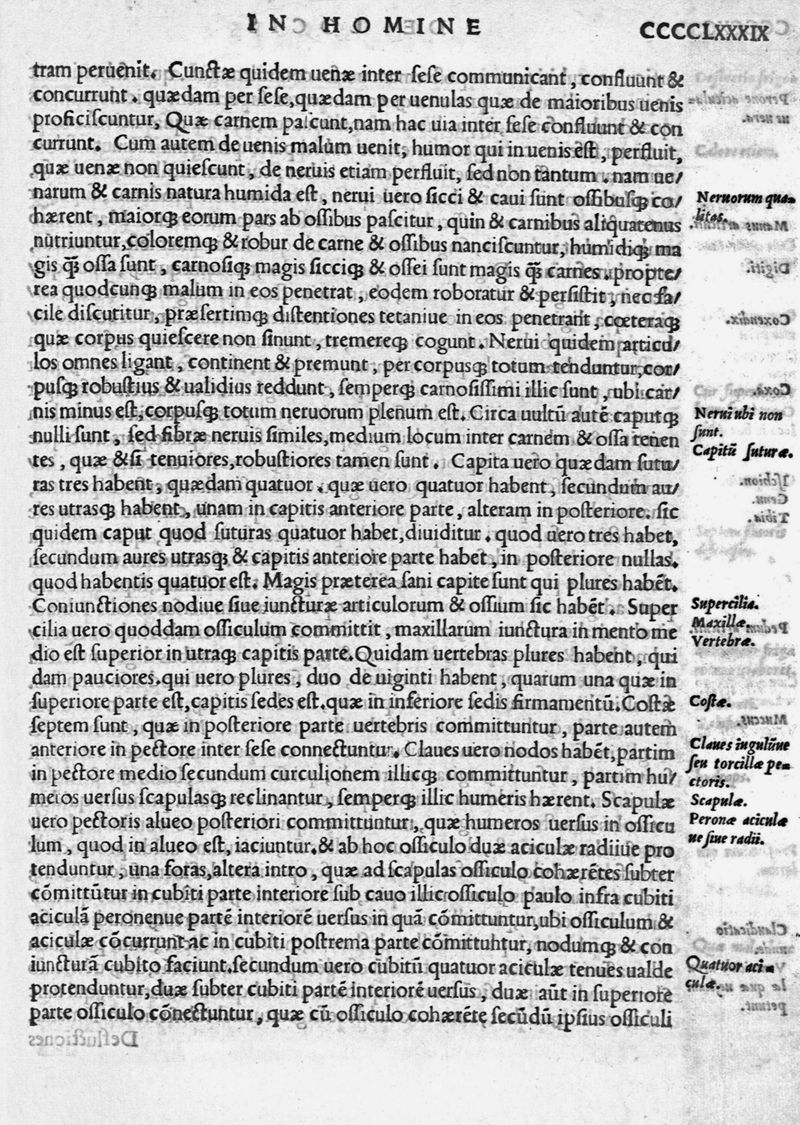 IN HOMINE CCCCCLXXXIX
tram peruenit. Cunctæ quidem uenæ inter sese communicant, confluunt &
concurrunt. quædam per sese, quædam per uenulas quæ de maioribus uenis
proficiscuntur, Quæ carnem pascunt, nam hac uia inter sese confluunt & con
currunt. Cum autem de uenis malum uenit, humor qui in uenis est, perfluit,
quæ uenæ non quiescunt, de neruis etiam perfluit, sed non tantum. nam ue/
narum & carnis natura humida est, nerui uero sicci & caui sunt ossibusq́; co/
Neruorum qua-
hærent, maiorq́; eorum pars ab ossibus pascitur, quin & carnibus aliquatenus
litas.
nutriuntur, coloremq́; & robur de carne & ossibus nanciscuntur, humidiq́; ma
gis q̃ ossa sunt, carnosiq́; magis sicciq́; & ossei sunt magis q̃ carnes. propte/
rea quodcunq́; malum in eos penetrat, eodem roboratur & persistit, nec fa/
cile discutitur, præsertimq́; distentiones tetaniue in eos penetrant, cœteraq́;
quæ corpus quiescere non sinunt, tremereq́; cogunt. Nerui quidem articu/
los omnes ligant, continent & premunt, per corpusq́; totum tenduntur, cor/
pusq́; robustius & ualidius reddunt, semperq́; carnosissimi illic sunt, ubi car/
nis minus est, corpusq́; totum neruorum plenum est. Circa uultũ autẽ caputq́;
Nerui ubi non
nulli sunt, sed fibræ neruis similes, medium locum inter carnem & ossa tenen
sunt.
tes, quæ & si tenuiores, robustiores tamen sunt. Capita uero quædam sutu/
Capitũ suturæ.
ras tres habent, quædam quatuor. quæ uero quatuor habent, secundum au/
res utrasq́; habent, unam in capitis anteriore parte, alteram in posteriore. sic
quidem caput quod suturas quatuor habet, diuiditur. quod uero tres habet,
secundum aures utrasq́; & capitis anteriore parte habet, in posteriore nullas.
quod habentis quatuor est. Magis præterea sani capite sunt qui plures habẽt.
Coniunctiones nodiue siue iuncturæ articulorum & ossium sic habẽt. Super
Supercilia.
cilia uero quoddam ossiculum committit, maxillarum iunctura in mento me
Maxillæ.
dio est superior in utraq́; capitis parte. Quidam uertebras plures habent, qui
Vertebræ.
dam pauciores. qui uero plures, duo de uiginti habent, quarum una quæ in
superiore parte est, capitis sedes est. quæ in inferiore sedis firmamentũ. Costæ
Costæ.
septem sunt, quæ in posteriore parte uertebris committuntur, parte autem
anteriore in pectore inter sese connectuntur. Claues uero nodos habẽt, partim
Claues iugulũue
in pectore medio secundum curculionem illicq́; committuntur, partim hu/
seu torcillæ pe-
ctoris.
meros uersus scapulasq́; reclinantur, semperq́; illic humeris hærent. Scapulæ
Scapulæ.
uero pectoris alueo posteriori committuntur, quæ humeros uersus in ossicu
Peronæ aciculæ
lum, quod in alueo est, iaciuntur. & ab hoc ossiculo duæ aciculæ radiiue pro
ue siue radii.
tenduntur, una foras, altera intro, quæ ad scapulas ossiculo cohærẽtes subter
cõmittũtur in cubiti parte interiore sub cauo illic ossiculo paulo infra cubiti
aciculã peronenue partẽ interiorẽ uersus in quã cõmittuntur, ubi ossiculum &
aciculæ cõcurrunt ac in cubiti postrema parte cõmittuhtur, nodumq́; & con
iuncturã cubito faciunt. secundum uero cubitũ quatuor aciculæ tenues ualde
Quatuor aci-
protenduntur, duæ subter cubiti partẽ interiorẽ uersus, duæ aũt in superiore
culæ.
parte ossiculo cõnectuntur, quæ cũ ossiculo cohærẽtę secũdũ ipsius ossiculi